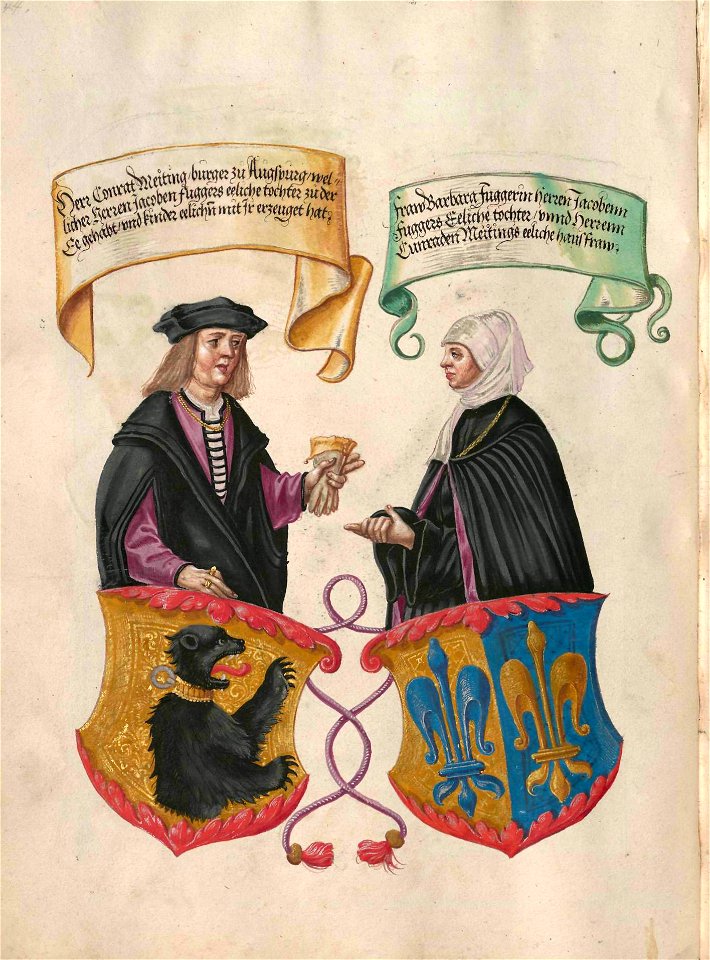 Herr Conrat Meiting / burger zu Augspurg / wel-
licher Herren Jacoben Fuggers eeliche tochter zu der
Ee gehabt / vnd kinder eelichn mit Ir erzeuget hat.
fraw Barbara Fuggerin Herren Jacobenn
Fuggers Eeliche tochter / vnnd Herrenn
Cunraden Meitings eeliche hausfraw.